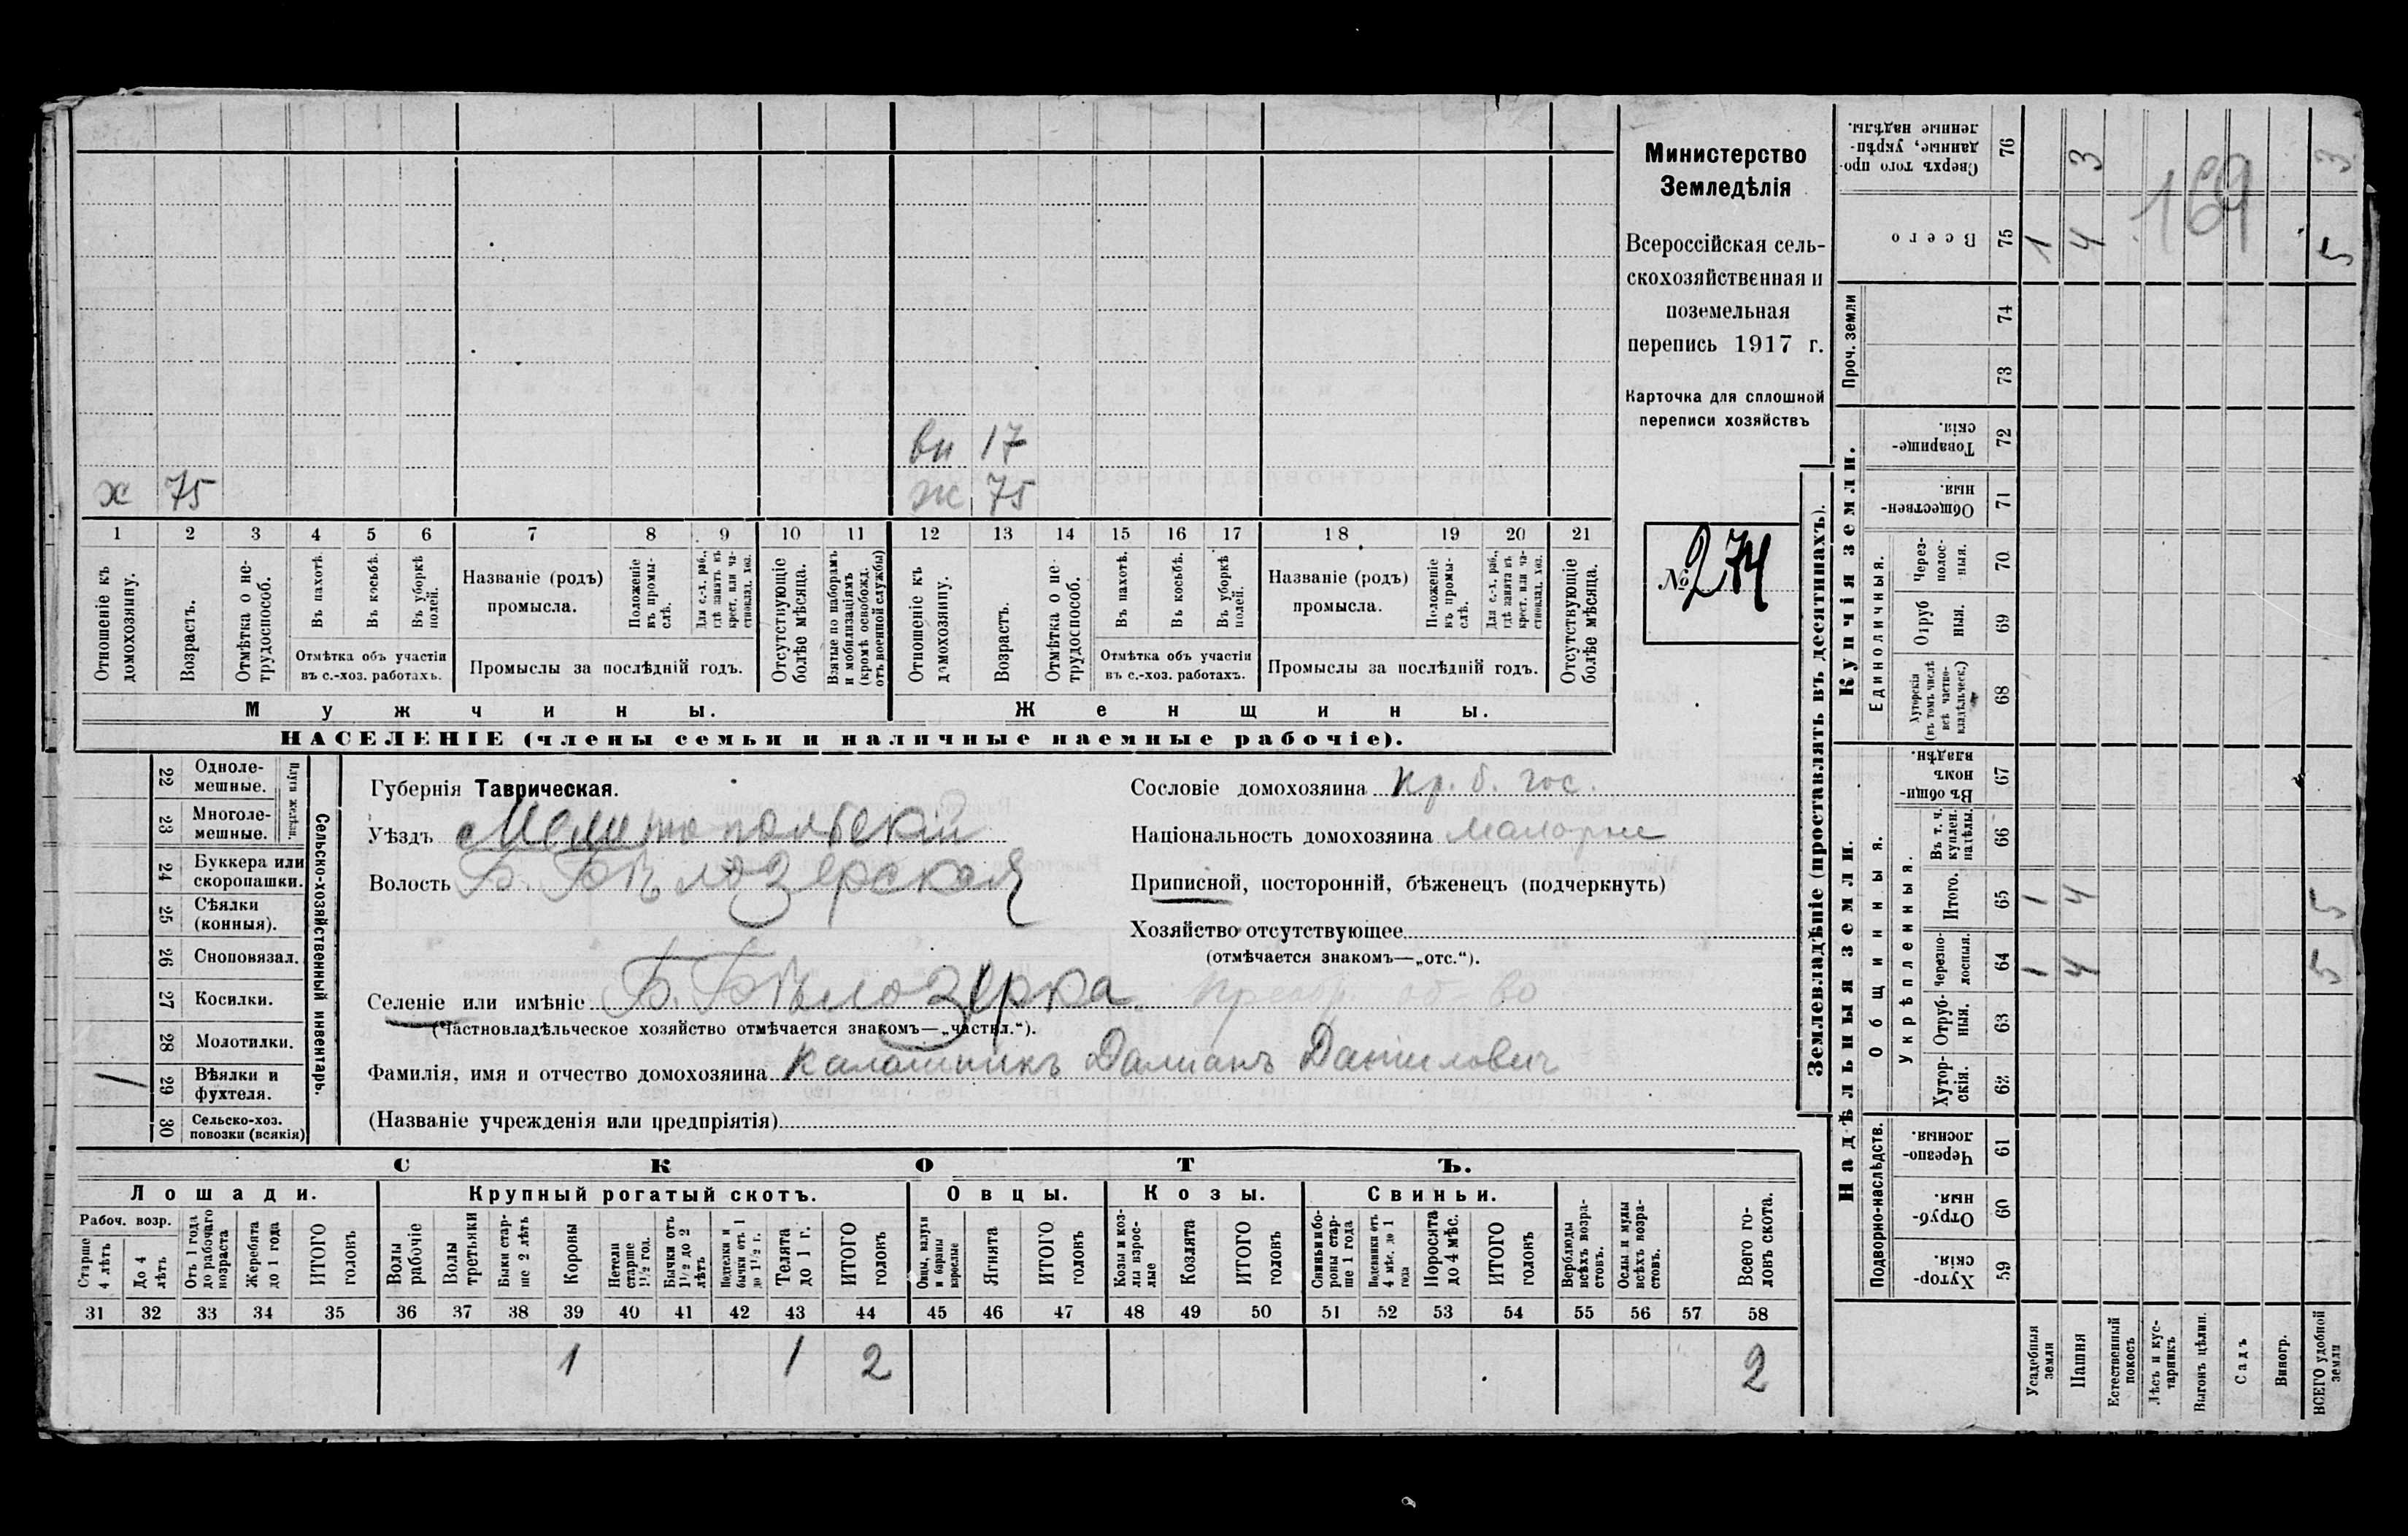 Министерство
Земледѣлія
Всероссійская сель-
скохозяйственная и
поземельная
перепись 1917 г.
Карточка для сплошной
переписи хозяйствъ
№ 274
вн 17
х 75
ж 75
1 2 3 4 5 6 7 8 9 10 11 12 13 14 15 16 17 18 19 20 21
Отношеніе къ домохозяину.
Возрастъ.
Отмѣтка о не-трудоспособ.
Въ пахотѣ.
Въ косьбѣ.
Въ уборкѣ полей.
Отмѣтка объ участіи
въ с.-хоз. работахъ.
Названіе (родъ)
промысла.
Положеніе въ промы-слѣ.
Для с.-х. раб., гдѣ занятъ въ крест. или ча-стновлад. хоз.
Промыслы за послѣдній годъ.
Отсутствующіе болѣе мѣсяца.
Взятые по наборамъ и мобилизаціямъ (кромѣ освобожд. отъ военной службы)
Отношеніе къ домохозяину.
Возрастъ.
Отмѣтка о не-трудоспособ.
Въ пахотѣ.
Въ косьбѣ.
Въ уборкѣ полей.
Отмѣтка объ участіи
въ с.-хоз. работахъ.
Названіе (родъ)
промысла.
Положеніе въ промы-слѣ.
Для с.-х. раб., гдѣ занята въ крест. или ча-стновлад. хоз.
Промыслы за послѣдній годъ.
Отсутствующіе болѣе мѣсяца.
Мужчины.
Женщины.
НАСЕЛЕНІЕ (члены семьи и наличные наемные рабочіе).
Сельско-хозяйственный инвентарь.
Плуги желѣзн.
22 Одноле-мешные.
23 Многоле-мешные.
24 Буккера или скоропашки.
25 Сѣялки (конныя).
26 Сноповязал.
27 Косилки.
28 Молотилки.
1 29 Вѣялки и фухтеля.
30 Сельско-хоз. повозки (всякія)
Губернія Таврическая.
Уѣздъ Мелитопольскій
Волость Б. Бѣлозерская
Селеніе или имѣніе Б. Бѣлозерка
(Частновладѣльческое хозяйство отмѣчается знакомъ—„частвл.“).
Фамилія, имя и отчество домохозяина Калашникъ Дамианъ Даниловичъ
(Названіе учрежденія или предпріятія)
Сословіе домохозяина кр. б. гос.
Національность домохозяина малорос
Приписной, посторонній, бѣженецъ (подчеркнуть)
Хозяйство отсутствующее
(отмѣчается знакомъ—„отс.“).
СКОТЪ.
Лошади.
Крупный рогатый скотъ.
Овцы.
Козы.
Свиньи.
Рабоч. возр.
Старше 4 лѣтъ
До 4 лѣтъ
Отъ 1 года до рабочаго возраста
Жеребята до 1 года
ИТОГО головъ
Волы рабочіе
Волы третьяки
Быки стар-ше 2 лѣтъ
Коровы
Нетели старше 1½ год.
Бычки отъ 1½ до 2 лѣтъ
Подтелки и бычки отъ 1 до 1½ г.
Телята до 1 г.
ИТОГО головъ
Овцы, валухи и бараны взрослые
Ягнята
ИТОГО головъ
Козы и коз-лы взрос-лые
Козлята
ИТОГО головъ
Свиньи и бо-роны стар-ше 1 года
Подсвинки отъ 4 мѣс. до 1 года
Поросята до 4 мѣс.
ИТОГО головъ
Верблюды всѣхъ возра-стовъ.
Ослы и мулы всѣхъ возра-стовъ.
Всего го-ловъ скота.
31 32 33 34 35 36 37 38 39 40 41 42 43 44 45 46 47 48 49 50 51 52 53 54 55 56 57 58
1 1 2 2
Землевладѣніе (проставлять въ десятинахъ).
Надѣльныя земли.
Купчія земли.
Проч. земли
Подворно-наслѣдств.
Общинныя.
Укрѣпленныя.
Единоличныя.
Хутор-скія. 59
Отруб-ныя. 60
Черезпо-лосныя. 61
Хутор-скія. 62
Отруб-ныя. 63
Черезпо-лосныя. 64 1 4 5
Итого. 65 1 4 5
Въ т. ч. куплен. надѣлы. 66
Въ общин-номъ владѣн. 67
Хуторскія (въ томъ числѣ всѣ частно-владѣльческ.) 68
Отруб ныя. 69
Через-полос-ныя. 70
Обществен-ныя. 71
Товарище-скія. 72
73
74
Всего 75 1 4 5
Сверхъ того про-данные, укрѣп-ленные надѣлы. 76 3 3
169
Усадебныя земли
Пашня
Естественный покосъ
Лѣсъ и кус-тарникъ
Выгонъ цѣлин.
Садъ
Виногр.
ВСЕГО удобной земли